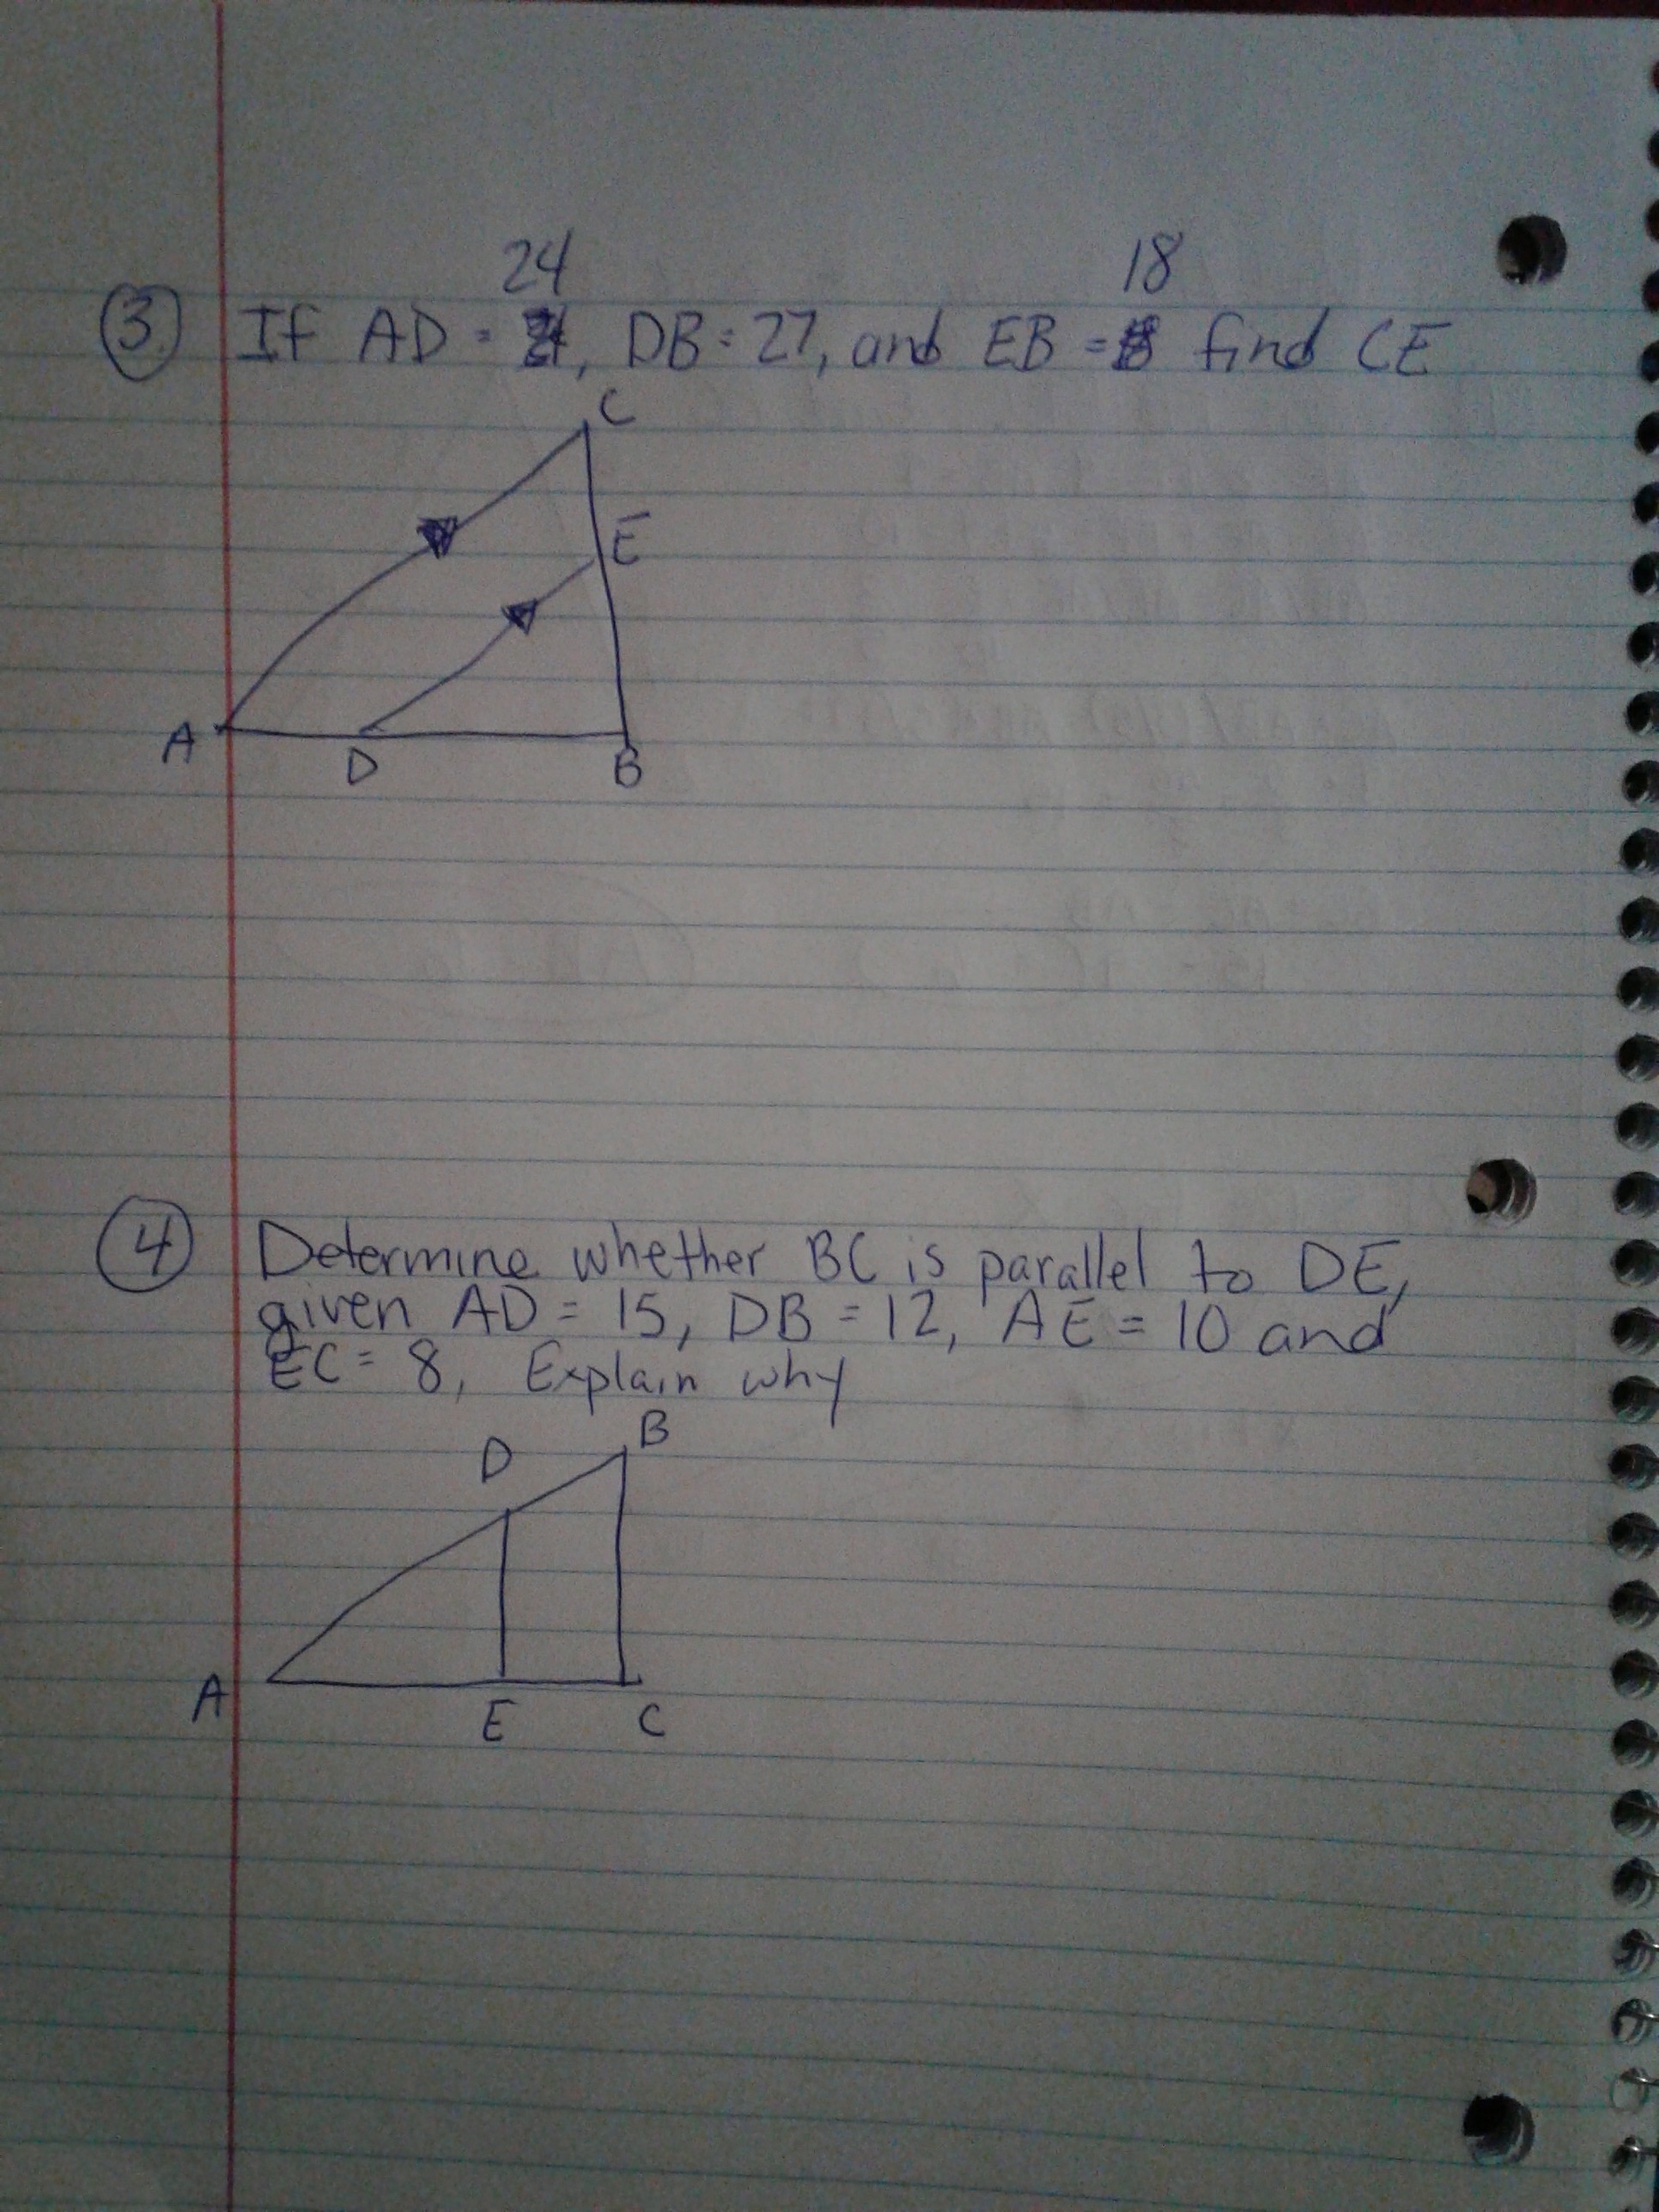 24 18
③ If AD = 24, DB = 27, and EB = 18 find CE
C
E
A
D
B
④ Determine whether BC is parallel to DE,
given AD = 15, DB = 12, AE = 10 and
EC = 8, Explain why
B
D
A
E
C